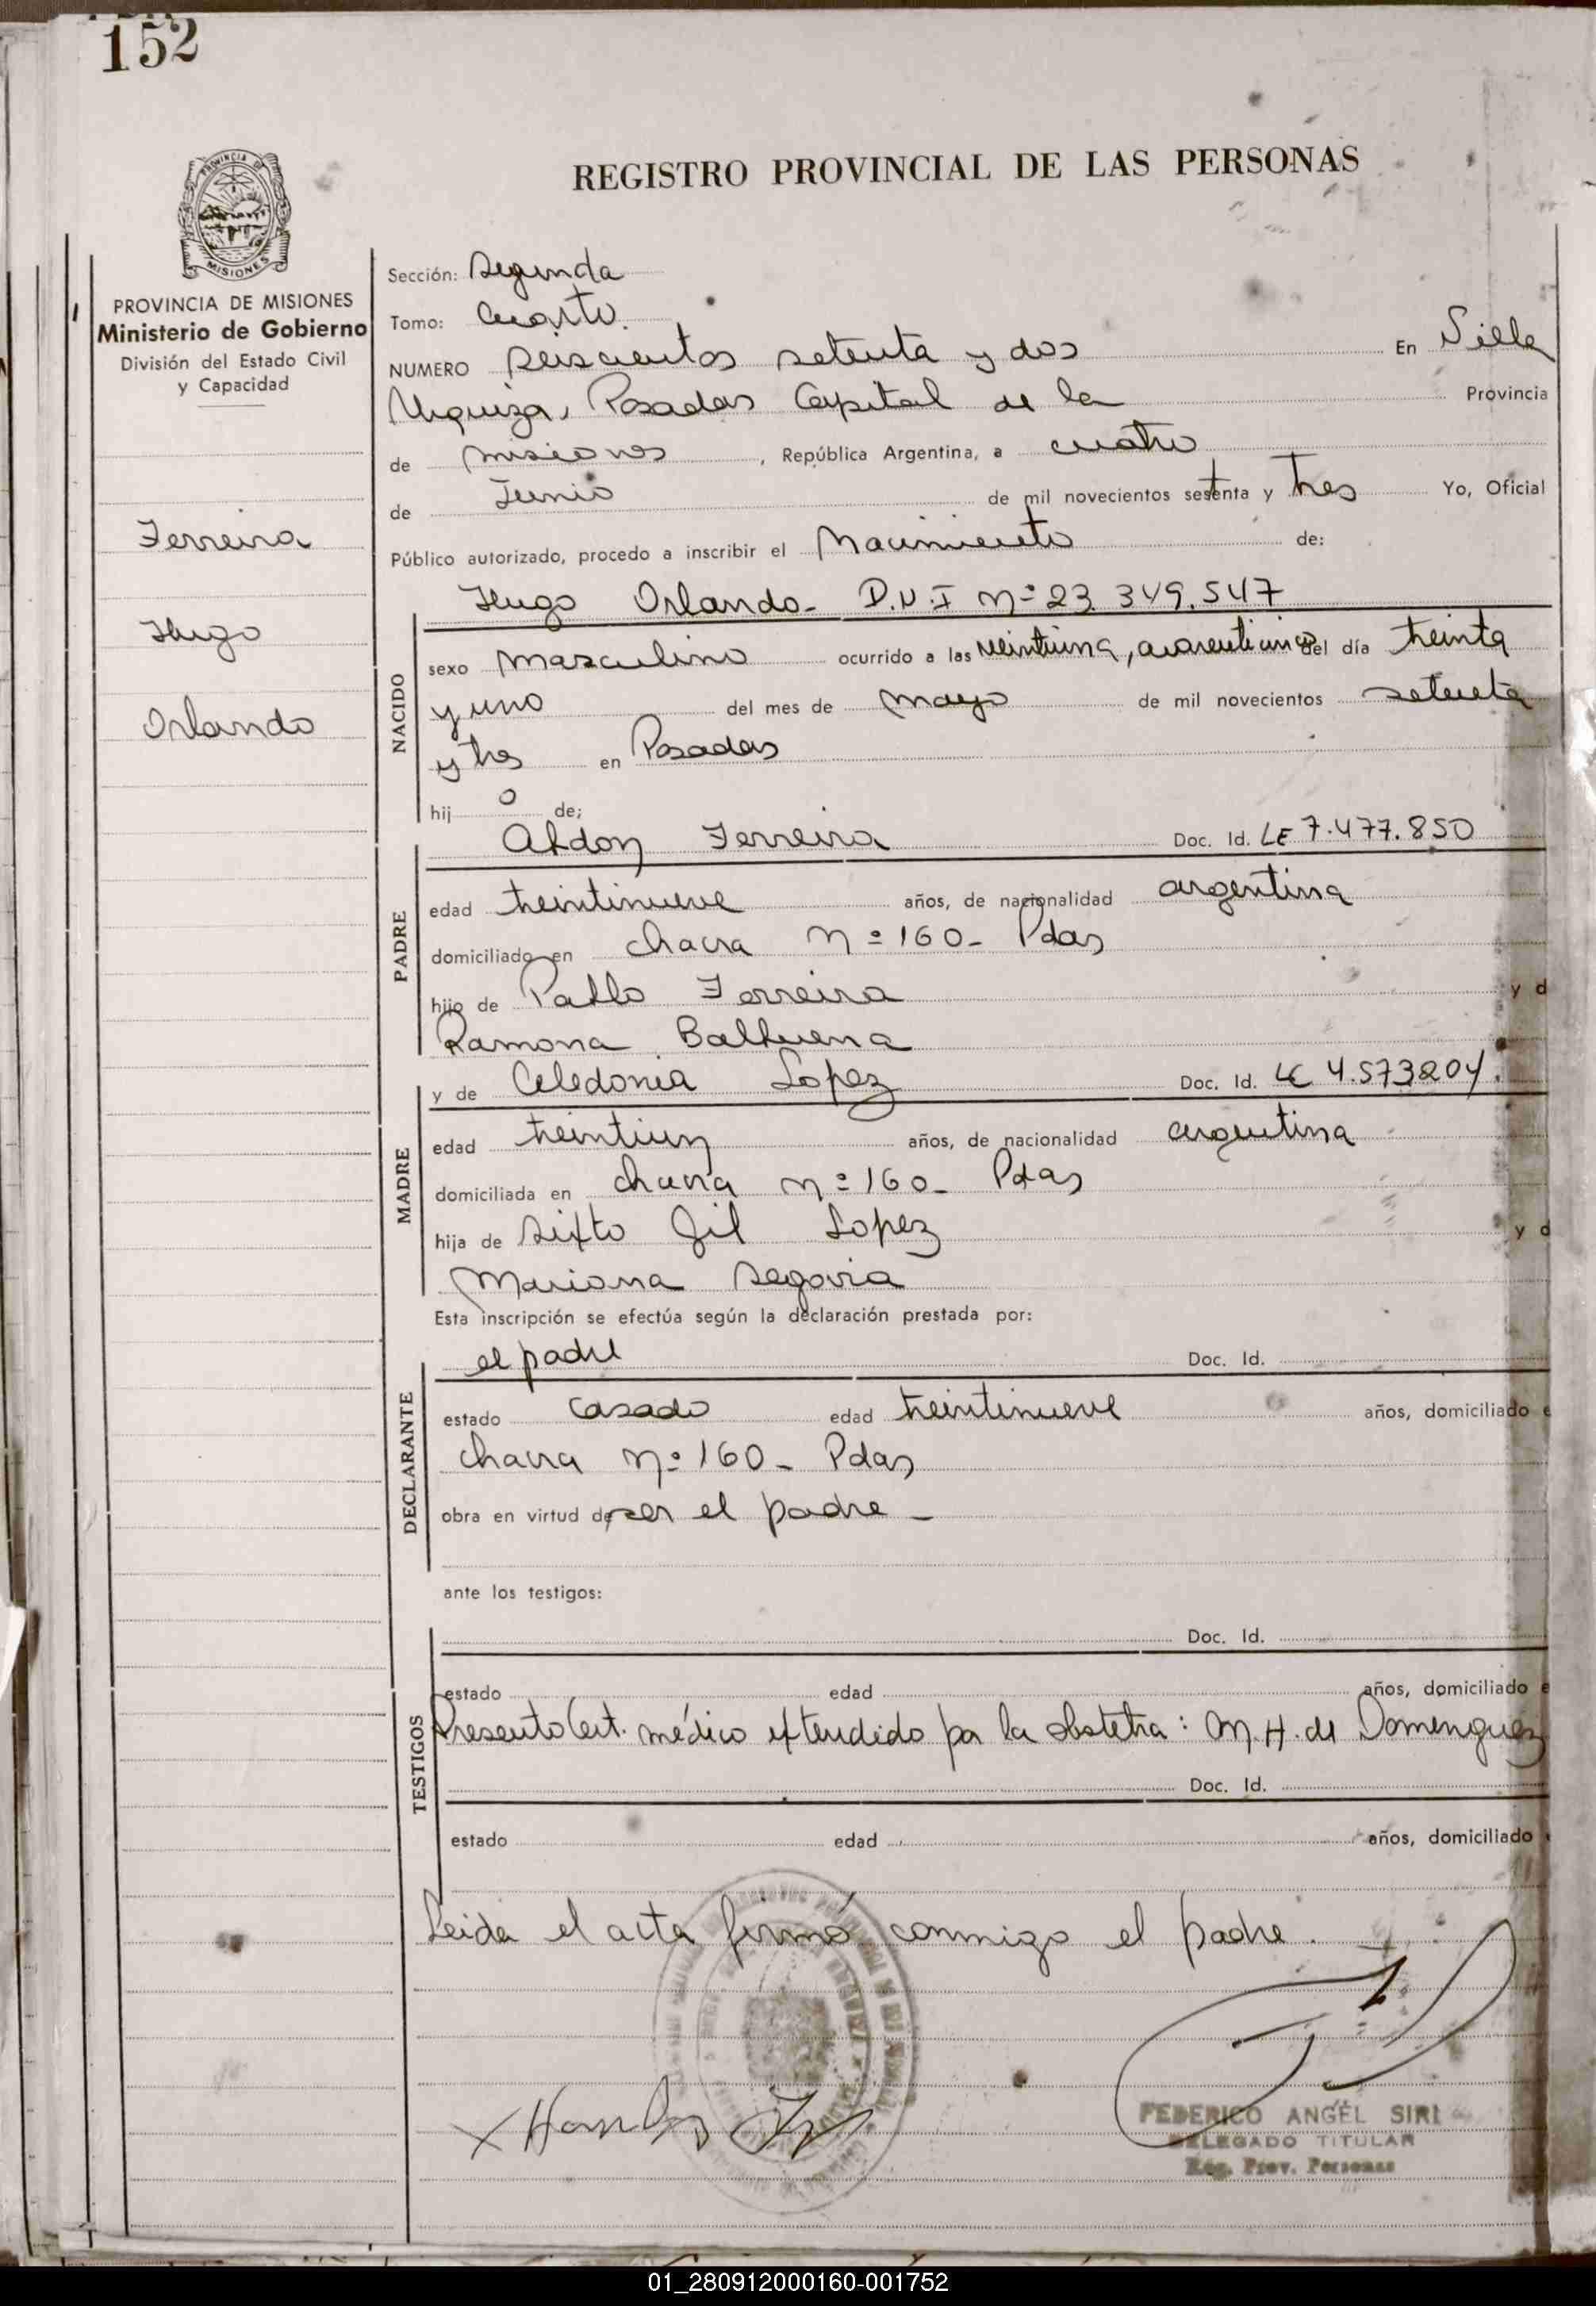 152
REGISTRO PROVINCIAL DE LAS PERSONAS
PROVINCIA DE MISIONES
Ministerio de Gobierno
División del Estado Civil
y Capacidad
Ferreira
Hugo
Orlando
Sección: Segunda
Tomo: Cuarto.
NUMERO Seiscientos setenta y dos En Villa
Urquiza, Posadas Capital de la Provincia
de misiones, República Argentina, a cuatro
de Junio de mil novecientos setenta y tres Yo, Oficial
Público autorizado, procedo a inscribir el Nacimiento de:
Hugo Orlando- D.N.I Nº 23.349.547
NACIDO
sexo masculino ocurrido a las veintiuna, cuarenticinco del día treinta
y uno del mes de mayo de mil novecientos setenta
y tres en Posadas
hijo de;
Abdon Ferreira Doc. Id. LE 7.477.850
PADRE
edad treintinueve años, de nacionalidad argentina
domiciliado en chacra Nº 160- Pdas
hijo de Pablo Ferreira y d
Ramona Balbuena
y de Celedonia Lopez Doc. Id. LC 4.573204.
MADRE
edad treintiun años, de nacionalidad argentina
domiciliada en chacra nº 160- Pdas
hija de Sixto Gil Lopez y d
Mariana Segovia
Esta inscripción se efectúa según la declaración prestada por:
el padre Doc. Id.
DECLARANTE
estado Casado edad treintinueve años, domiciliado e
chacra nº 160- Pdas
obra en virtud de ser el padre-
ante los testigos:
Doc. Id.
TESTIGOS
estado edad años, domiciliado e
Presento Cert. médico extendido por la obstetra: M.H. de Domenguez
Doc. Id.
estado edad años, domiciliado
Leida el acta firmó conmigo el padre.
FEDERICO ANGEL SIRI
DELEGADO TITULAR
Reg. Prov. Personas
01_280912000160-001752